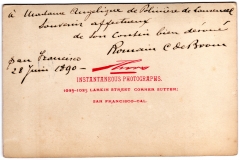 à Madame Angélique de Polinière de
Souvenir affectueux
de son Cousin bien dévoué
Romain C de Boom
San Francisco
28 Juin 1890 -
Thors
INSTANTANEOUS PHOTOGRAPHS.
1025-1027 LARKIN STREET CORNER SUTTER;
SAN FRANCISCO-CAL.